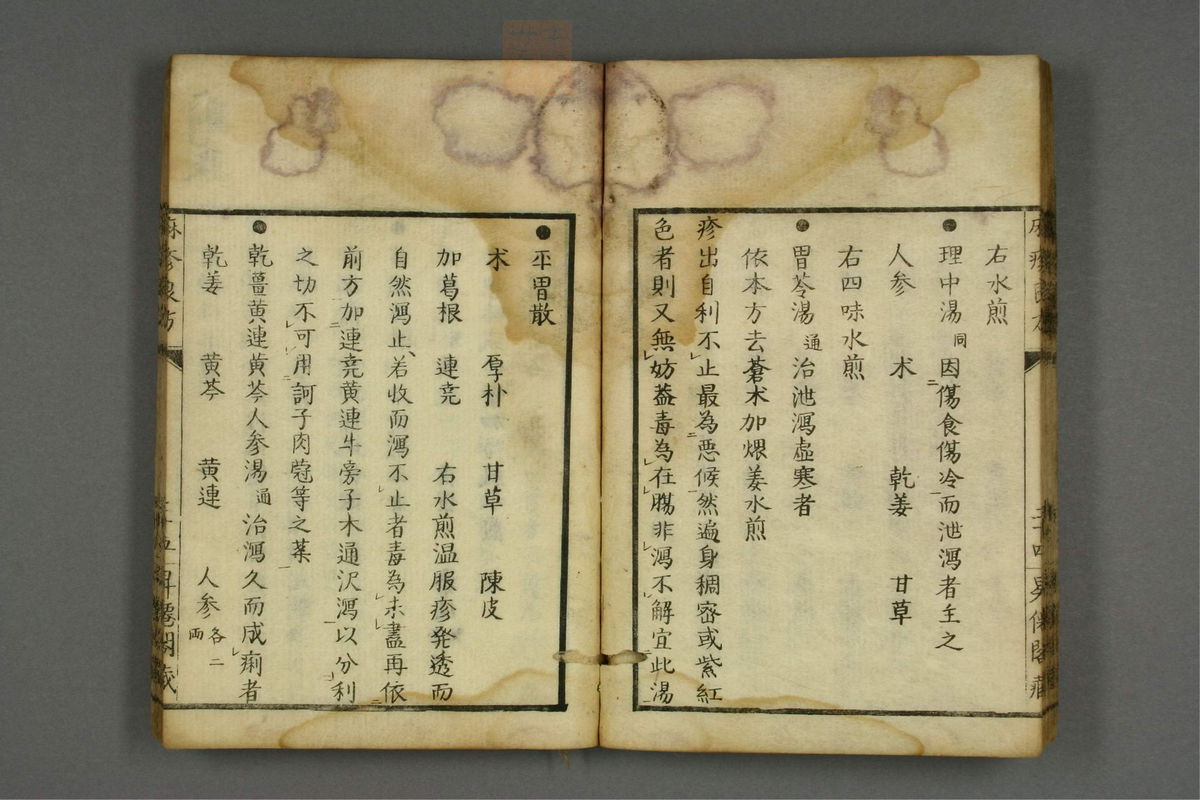 右水煎
●理中湯同 因傷食傷冷而泄瀉者主之
人参 术 乾姜 甘草
右四味水煎
●胃苓湯通 治泄瀉虚寒者
依本方去蒼术加煨姜水煎
疹出自利不止最為悪候然遍身稠密或紫紅
色者則又無妨葢毒為在膓非瀉不解宜此湯
●平胃散
术 厚朴 甘草 陳皮
加葛根 連尭 右水煎温服疹発透而
自然瀉止若收而瀉不止者毒為未盡再依
前方加連尭黄連牛旁子木通沢瀉以分利
之切不可用訶子肉蔲等之薬
●乾薑黄連黄芩人参湯通 治瀉久而成痢者
乾姜 黄芩 黄連 人参各二両